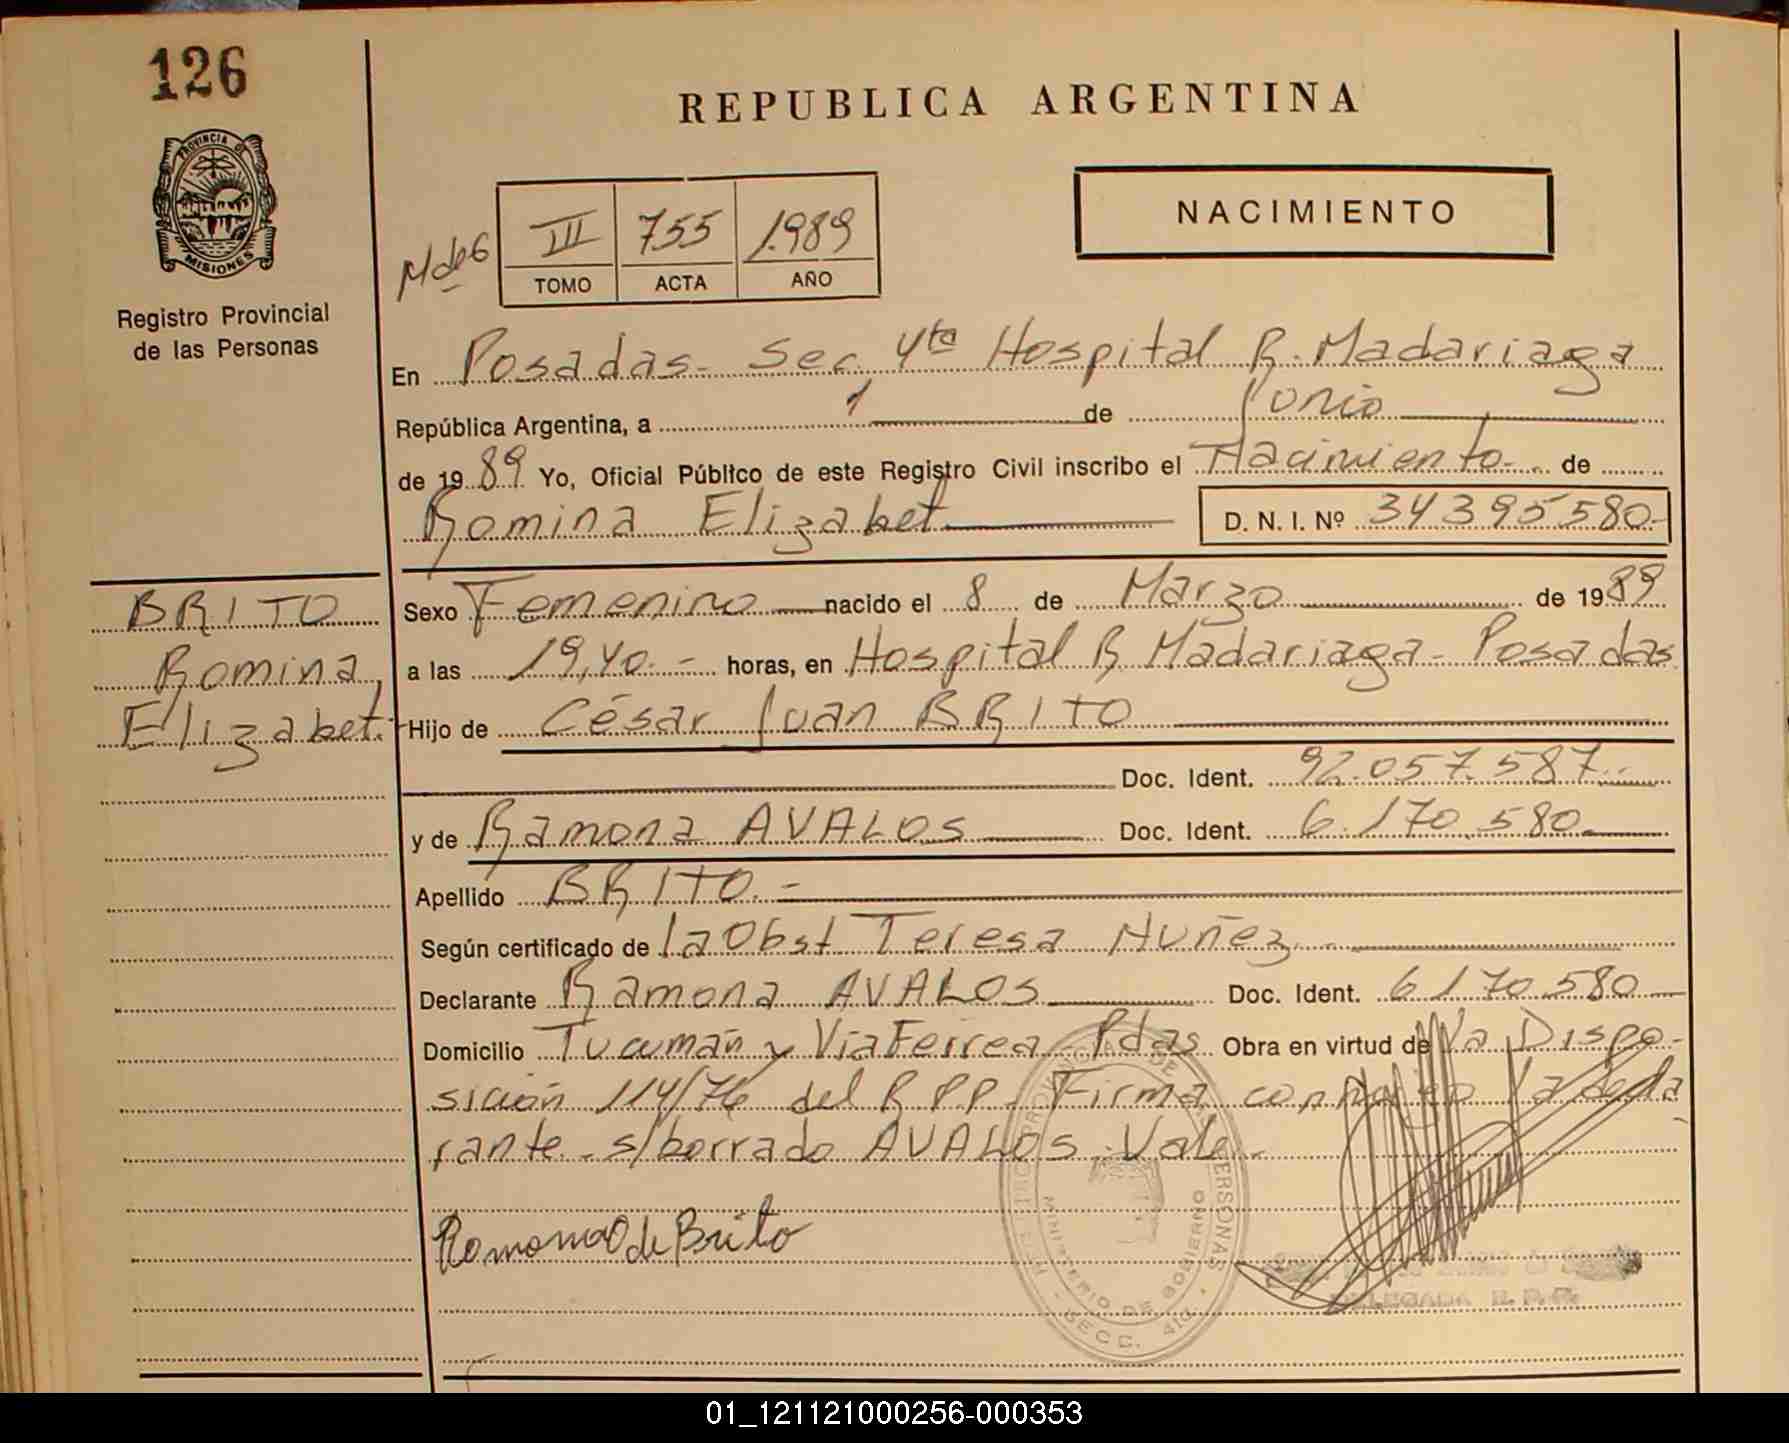 126
REPUBLICA ARGENTINA
PROVINCIA DE
MISIONES
NACIMIENTO
M de G
III 755 1.989
TOMO ACTA AÑO
Registro Provincial
de las Personas
En Posadas - Sec. 4ta Hospital R. Madariaga
República Argentina, a 1 de Junio
de 1989 Yo, Oficial Público de este Registro Civil inscribo el Nacimiento de
Romina Elizabet D. N. I. Nº 34395580-
BRITO
Romina
Elizabet.-
Sexo Femenino nacido el 8 de Marzo de 1989
a las 19,40.- horas, en Hospital R Madariaga - Posadas
Hijo de César Juan BRITO
Doc. Ident. 92.057.587.-
y de Ramona AVALOS Doc. Ident. 6.170.580.
Apellido BRITO.-
Según certificado de la Obst Teresa Nuñez.
Declarante Ramona AVALOS Doc. Ident. 6.170.580
Domicilio Tucumán y Vía Ferrea - Pdas Obra en virtud de la Dispo-
sición 114/76 del R.P.P. Firma conmigo la decla
rante. s/borrado AVALOS. Vale.-
Ramona de Brito
MINISTERIO DE GOBIERNO
PERSONAS
SECC. 4ta.
DELEGADA R. P. P.
01_121121000256-000353